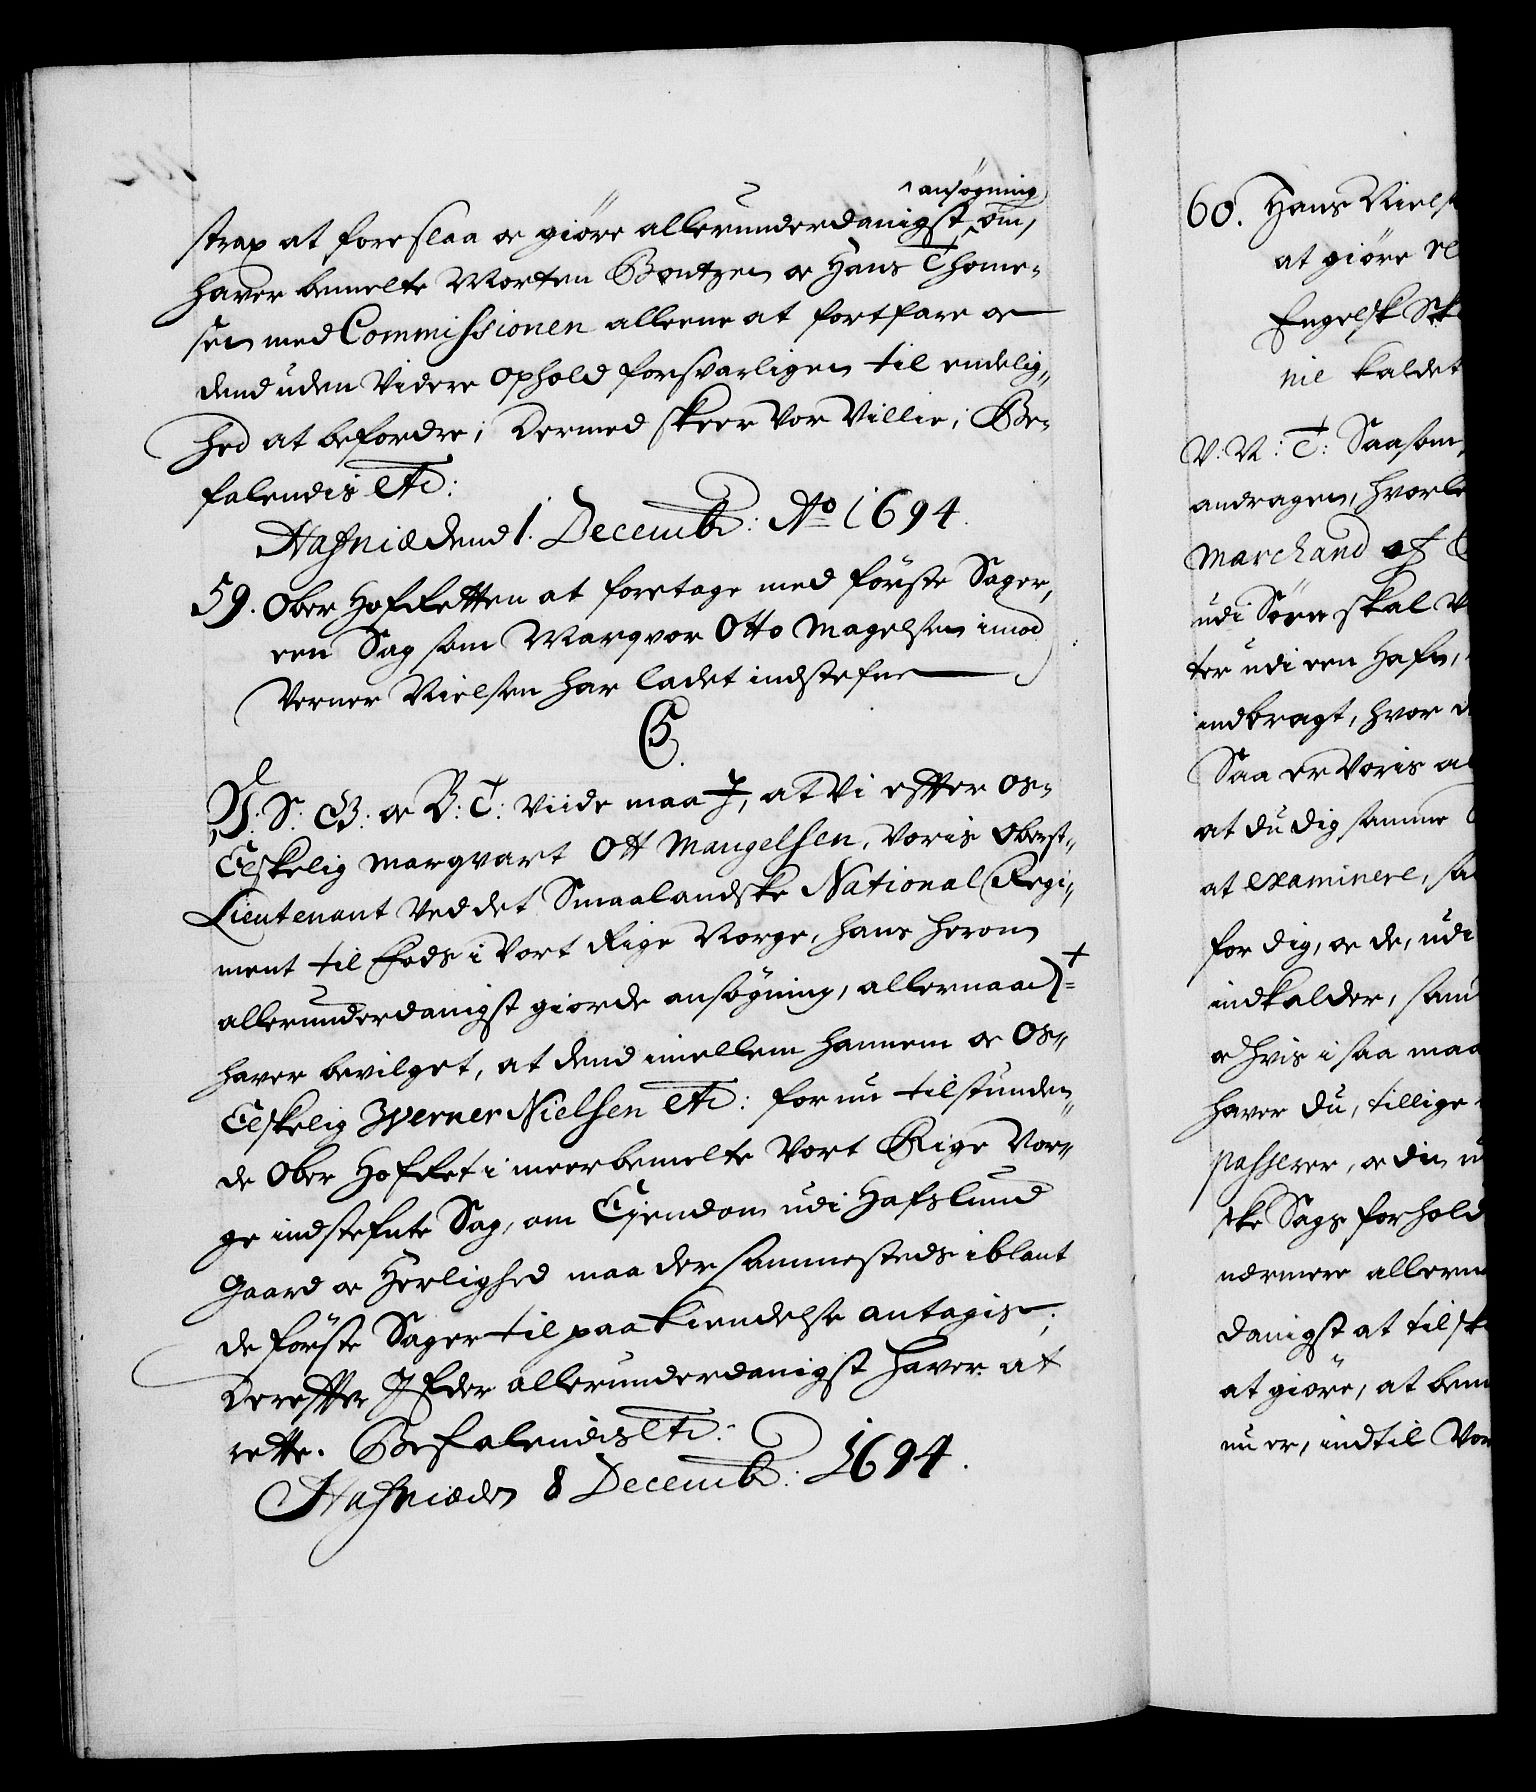 ansøgning
strax at foreslaa oc giöre allerunderdanigst om,
hafver bemelte Morten Bentzen oc Hans Thome-
sen med Commissionen alleene at fortfare oc
dend uden Videre Ophold forsvarligen til endelig-
hed at befordre; Dermed skeer Vor Villie, Be-
falendis etc:
Hafniæ dend 1. Decemb: Ao 1694.
59. Ober HofRetten at foretage med förste Sager,
een Sag som Marqvor Otto Magelsen imod
Verner Nielsen har ladet indstefne
C5.
S: G: oc B: T: Viide maa I, at Vi efter Os
Elskelig Marqvart Ott Mangelsen, Voris Oberst-
Lieutenant Ved det Smaalandske National Regi-
ment til Fods i Vort Rige Norge, hans herom
allerunderdanigst giorde ansøgning, allernaad: +
hafver bevilget, at dend imellem hannem oc Os
Elskelig Werner Nielsen etc: for nu tilstunden-
de Ober HofRet i meerbemelte Vort Rige Nor-
ge indstefnte Sag, om Ejendom udi Hafslund
Gaard oc Herlighed maa der sammesteds iblant
de förste Sager til paakiendelse antagis;
Derefter I Eder allerunderdanigst hafver at
rette. Befalendis etc:
Hafniæ den 8 Decemb: 1694.
60. Hans Niels
at giöre
Engelsk Sk
nie kaldet
V: N: T: Saasom
andragen, hvorle
Marchand af
udi Söen skal V
ter udi een Hafn,
indbragt, hvor d
Saa er Voris al
at du dig samme
at examinere, sa
for dig, oc de, udi
indkalder, sam
oc hvis i saa maa
hafver du, tillige
passerer, oc din u
ske Sags forhold
nermere allern
danigst at tilsk
at giöre, at bem
nu er, indtil Vor